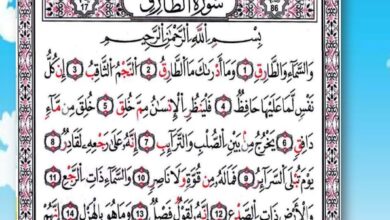 17 سُورَةُ الطَّارِقِ 86
بِسْمِ اللَّهِ الرَّحْمَٰنِ الرَّحِيمِ
وَالسَّمَاءِ وَالطَّارِقِ 1 وَمَا أَدْرَىٰكَ مَا الطَّارِقُ 2 النَّجْمُ الثَّاقِبُ 3 إِنْ كُلُّ
نَفْسٍ لَمَّا عَلَيْهَا حَافِظٌ 4 فَلْيَنْظُرِ الْإِنْسَانُ مِمَّ خُلِقَ 5 خُلِقَ مِنْ مَاءٍ
دَافِقٍ 6 يَخْرُجُ مِنْ بَيْنِ الصُّلْبِ وَالتَّرَائِبِ 7 إِنَّهُ عَلَىٰ رَجْعِهِ لَقَادِرٌ 8
يَوْمَ تُبْلَى السَّرَائِرُ 9 فَمَا لَهُ مِنْ قُوَّةٍ وَلَا نَاصِرٍ 10 وَالسَّمَاءِ ذَاتِ الرَّجْعِ 11
وَالْأَرْضِ ذَاتِ الصَّدْعِ 12 إِنَّهُ لَقَوْلٌ فَصْلٌ 13 وَمَا هُوَ بِالْهَزْلِ 14 إِنَّهُمْ